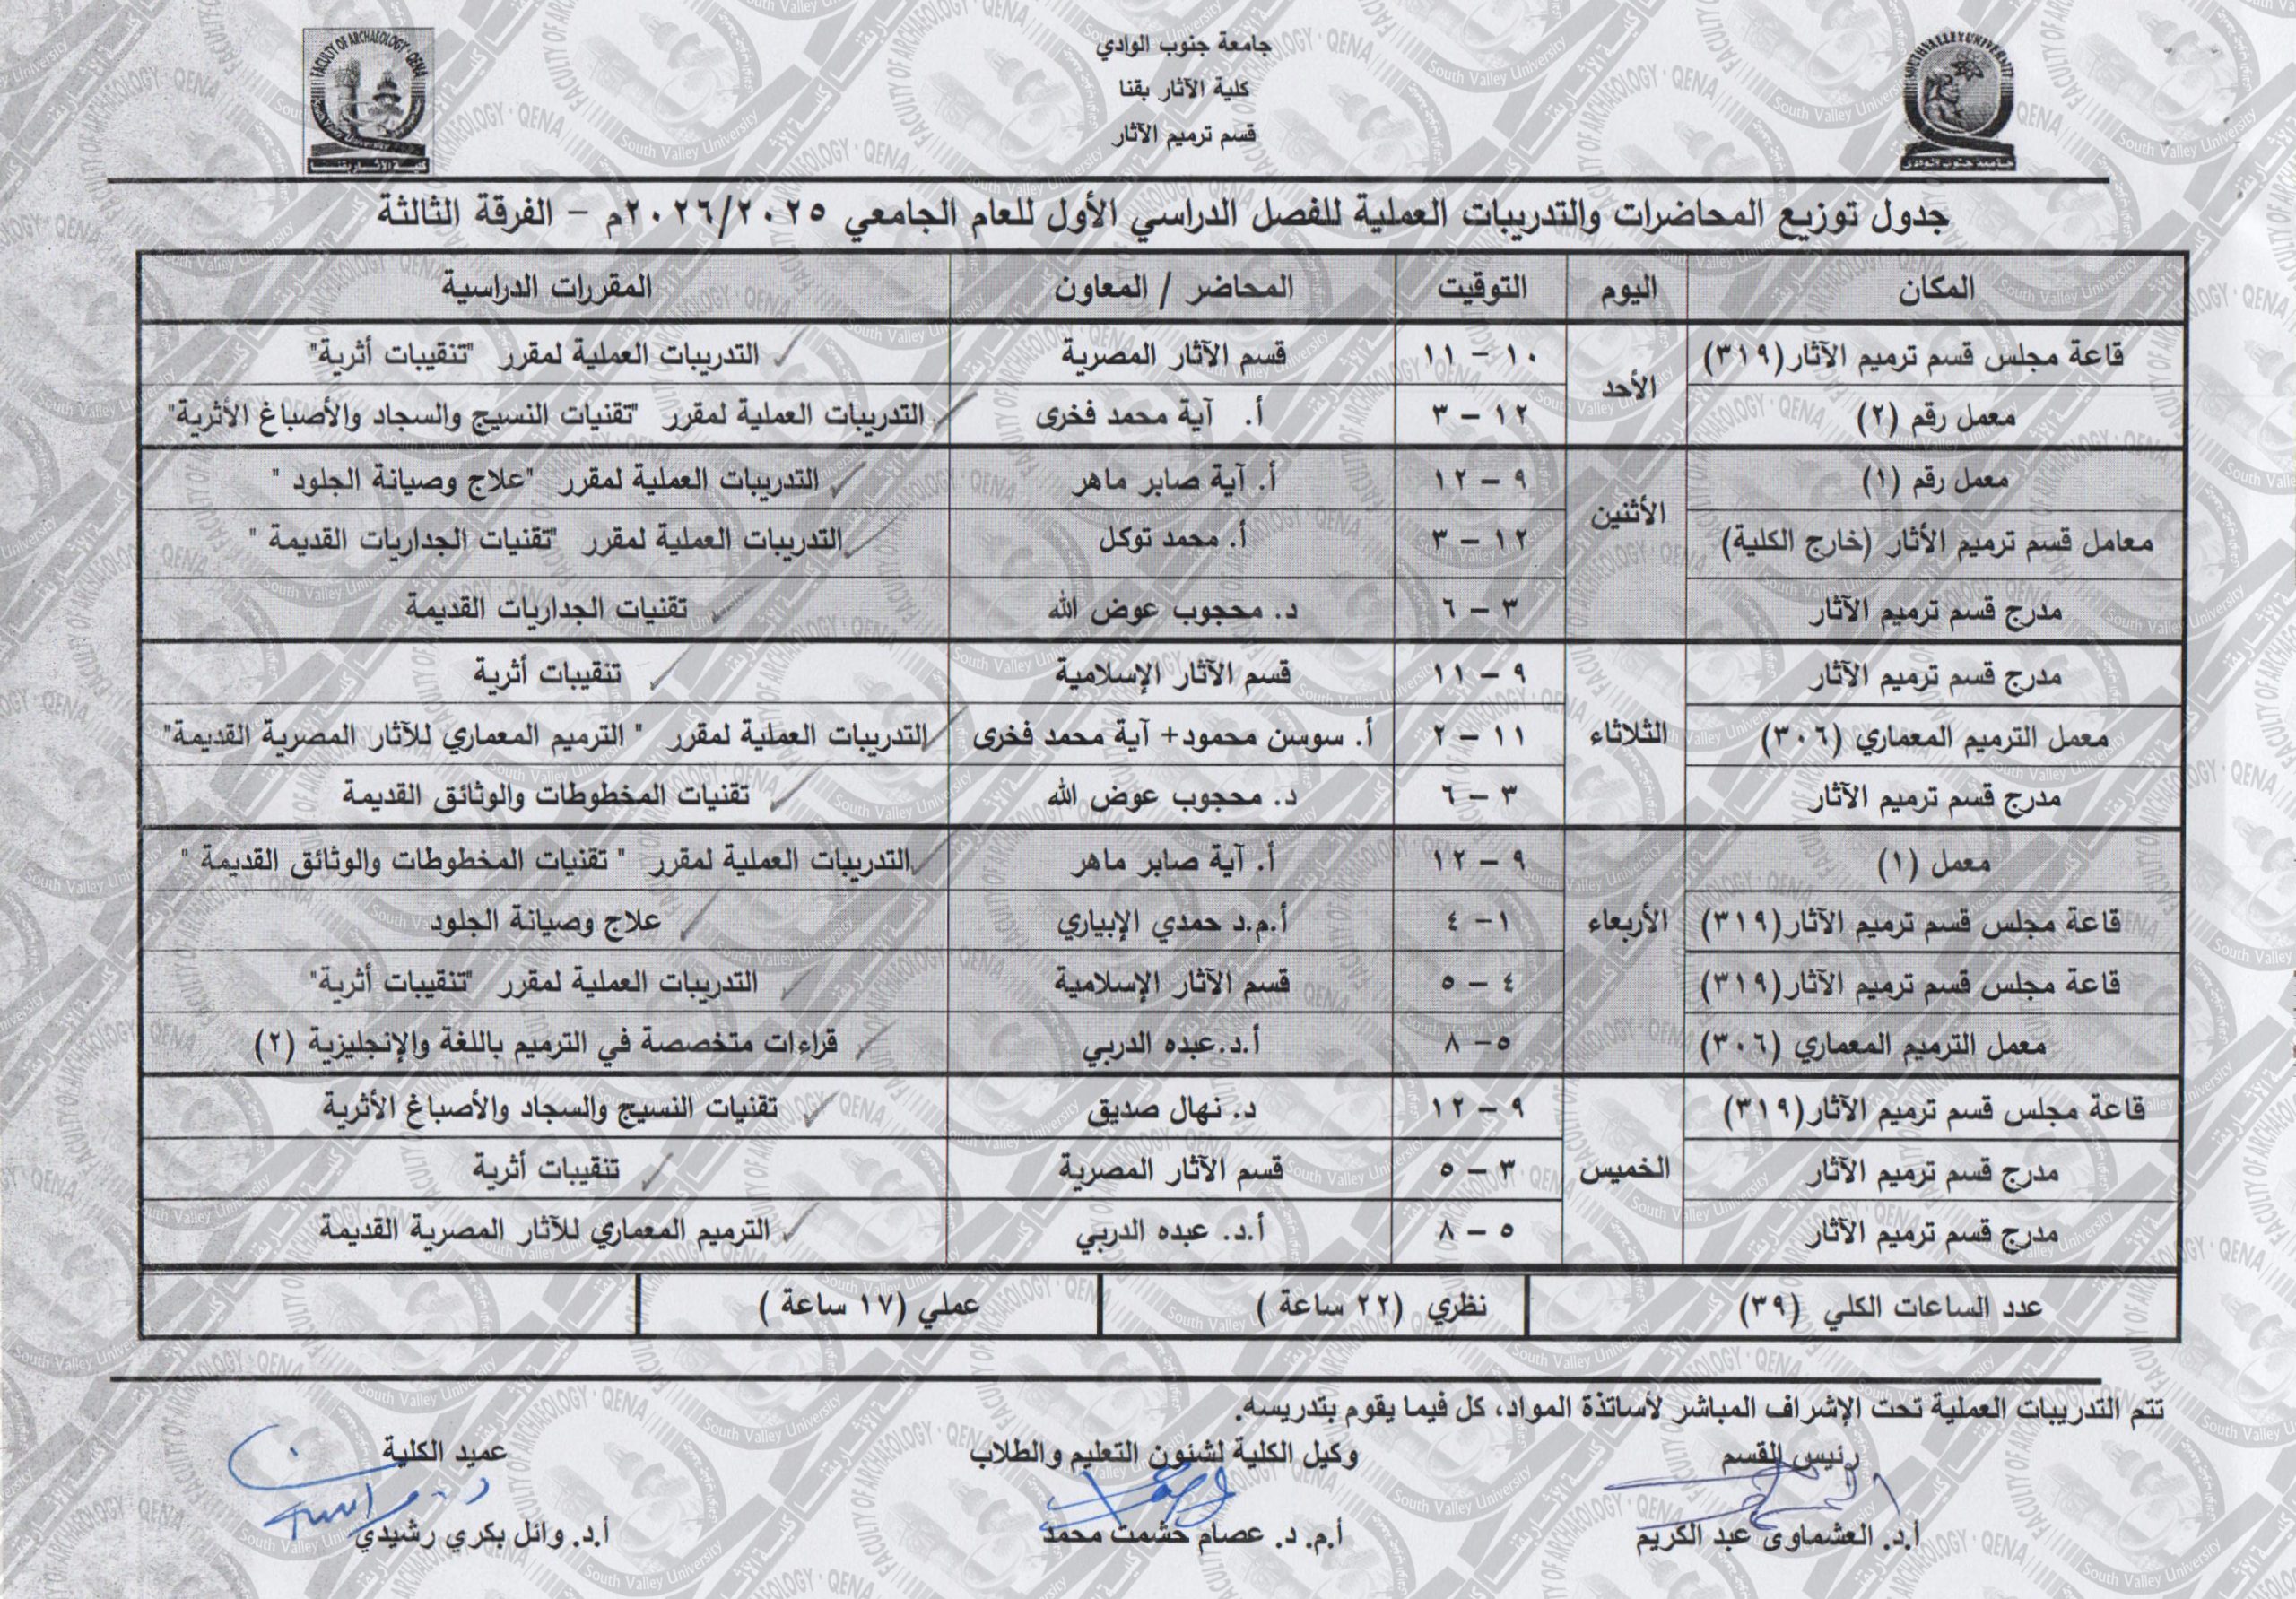 جامعة جنوب الوادي
كلية الآثار بقنا
قسم ترميم الآثار
FACULTY OF ARCHAEOLOGY · QENA
South Valley University
كلية الآثار بقنا
SOUTH VALLEY UNIVERSITY
جامعة جنوب الوادي
جدول توزيع المحاضرات والتدريبات العملية للفصل الدراسي الأول للعام الجامعي ٢٠٢٦/٢٠٢٥م – الفرقة الثالثة
المكان اليوم التوقيت المحاضر / المعاون المقررات الدراسية
قاعة مجلس قسم ترميم الآثار(٣١٩) الأحد ١٠ – ١١ قسم الآثار المصرية التدريبات العملية لمقرر "تنقيبات أثرية"
معمل رقم (٢) ١٢ – ٣ أ. آية محمد فخرى التدريبات العملية لمقرر "تقنيات النسيج والسجاد والأصباغ الأثرية"
معمل رقم (١) الأثنين ٩ – ١٢ أ. آية صابر ماهر التدريبات العملية لمقرر "علاج وصيانة الجلود "
معامل قسم ترميم الأثار (خارج الكلية) ١٢ – ٣ أ. محمد توكل التدريبات العملية لمقرر "تقنيات الجداريات القديمة "
مدرج قسم ترميم الآثار ٣ – ٦ د. محجوب عوض الله تقنيات الجداريات القديمة
مدرج قسم ترميم الآثار الثلاثاء ٩ – ١١ قسم الآثار الإسلامية تنقيبات أثرية
معمل الترميم المعماري (٣٠٦) ١١ – ٢ أ. سوسن محمود+ آية محمد فخرى التدريبات العملية لمقرر " الترميم المعماري للآثار المصرية القديمة"
مدرج قسم ترميم الآثار ٣ – ٦ د. محجوب عوض الله تقنيات المخطوطات والوثائق القديمة
معمل (١) الأربعاء ٩ – ١٢ أ. آية صابر ماهر التدريبات العملية لمقرر " تقنيات المخطوطات والوثائق القديمة "
قاعة مجلس قسم ترميم الآثار(٣١٩) ١– ٤ أ.م.د حمدي الإبياري علاج وصيانة الجلود
قاعة مجلس قسم ترميم الآثار(٣١٩) ٤ – ٥ قسم الآثار الإسلامية التدريبات العملية لمقرر "تنقيبات أثرية"
معمل الترميم المعماري (٣٠٦) ٥– ٨ أ.د.عبده الدربي قراءات متخصصة في الترميم باللغة والإنجليزية (٢)
قاعة مجلس قسم ترميم الآثار(٣١٩) الخميس ٩ – ١٢ د. نهال صديق تقنيات النسيج والسجاد والأصباغ الأثرية
مدرج قسم ترميم الآثار ٣ – ٥ قسم الآثار المصرية تنقيبات أثرية
مدرج قسم ترميم الآثار ٥ – ٨ أ.د. عبده الدربي الترميم المعماري للآثار المصرية القديمة
عدد الساعات الكلي (٣٩) نظري (٢٢ ساعة ) عملي (١٧ ساعة )
تتم التدريبات العملية تحت الإشراف المباشر لأساتذة المواد، كل فيما يقوم بتدريسه.
رئيس القسم وكيل الكلية لشئون التعليم والطلاب عميد الكلية
أ.د. العشماوى عبد الكريم أ.م. د. عصام حشمت محمد أ.د. وائل بكري رشيدي